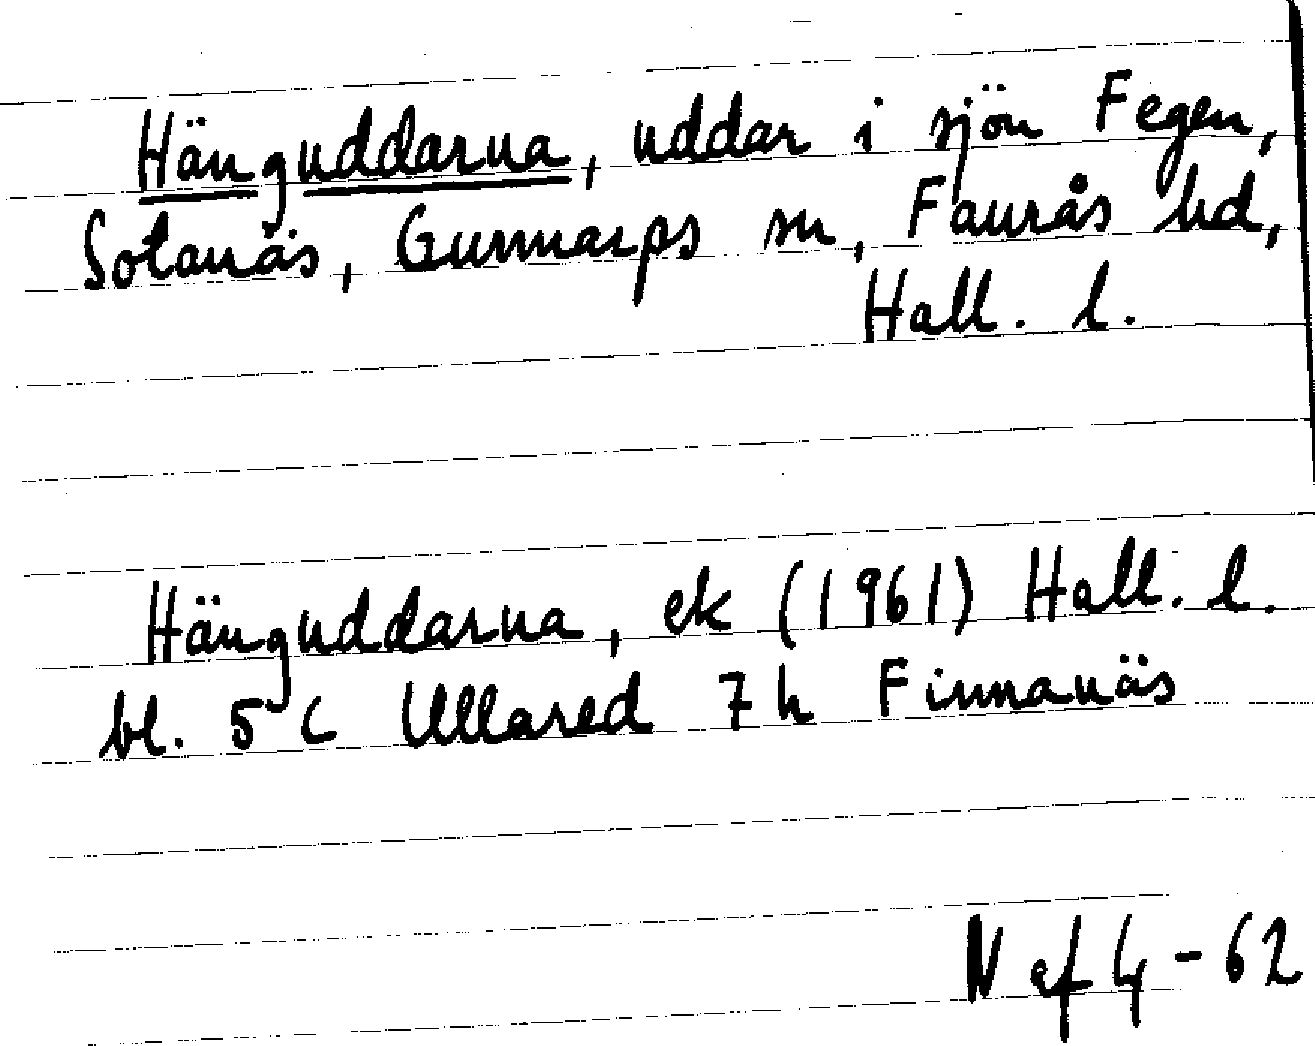 Hänguddarna, uddar i sjön Fegen,
Sotanäs, Gunnarps sn, Faurås hd,
Hall. l.
Hänguddarna, ek (1961) Hall. l.
bl. 5 C Ullared 7 h Finnanäs
N ef 4-62